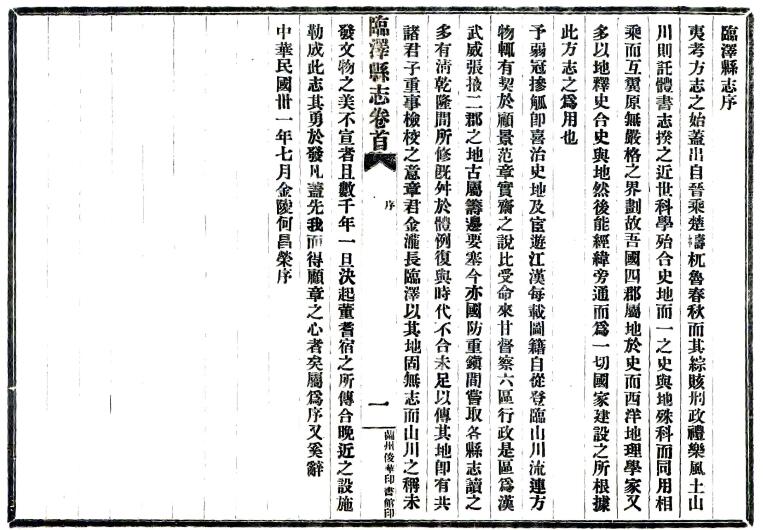 臨澤縣志序
夷考方志之始蓋出自晉乘楚檮杌魯春秋而其綜賅刑政禮樂風土山
川則託體書志揆之近世科學殆合史地而一之史與地殊科而同用相
乘而互翼原無嚴格之界劃故吾國四郡屬地於史而西洋地理學家又
多以地釋史合史與地然後能經緯旁通而爲一切國家建設之所根據
此方志之爲用也
予弱冠摻觚卽喜治史地及宦遊江漢每載圖籍自從登臨山川流連方
物輒有契於顧景范章實齋之說比受命來甘督察六區行政是區爲漢
武威張掖二郡之地古屬籌邊要塞今亦國防重鎮間嘗取各縣志讀之
多有淸乾隆間所修旣舛於體例復與時代不合未足以傳其地卽有共
諸君子重事檢校之意章君金瀧長臨澤以其地固無志而山川之稱未
臨澤縣志卷首
序
一
蘭州俊華印書館印
發文物之美不宣者且數千年一旦決起董耆宿之所傳合晚近之設施
勒成此志其勇於發凡蓋先我而得顧章之心者矣屬爲序又奚辭
中華民國卅一年七月金陵何昌榮序